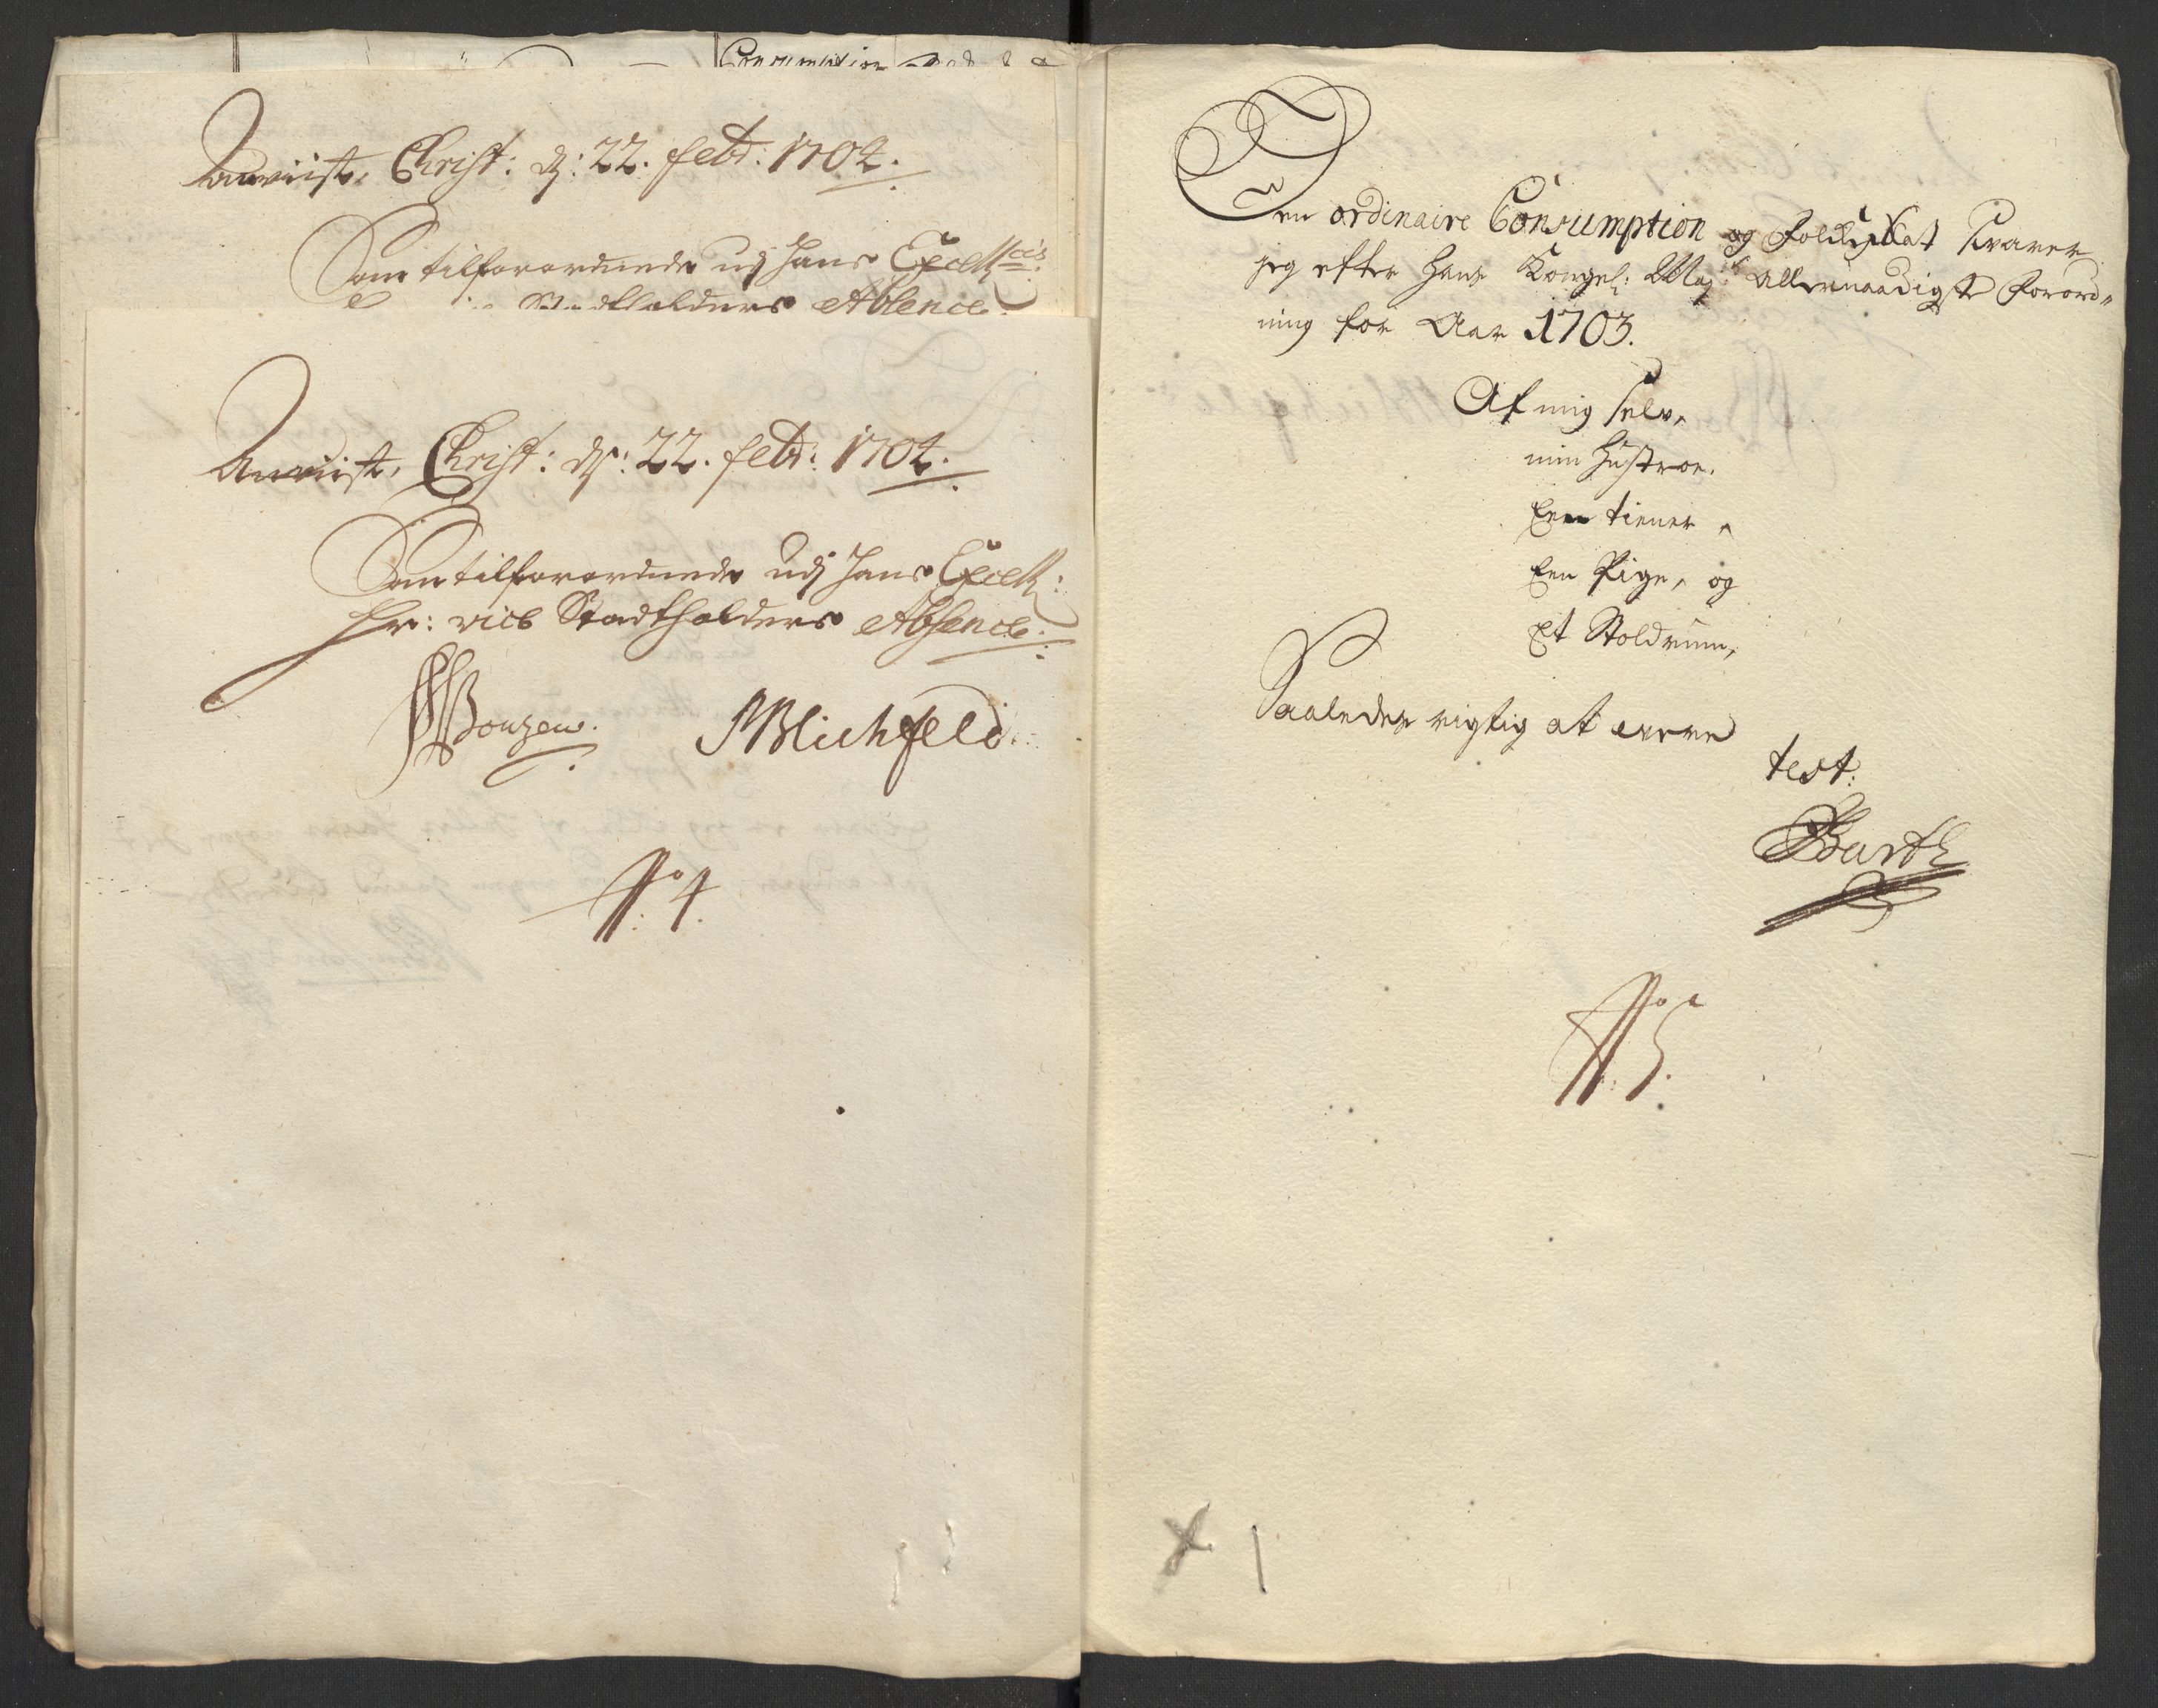 Consumption
Anviist, Christ: d: 22. febr: 1704.
Som tilforordnede udj Hans Excellces:
Stadtholders Absence.
Anviist, Christ: d: 22. febr: 1704.
Som tilforordnede udj Hans Excell:
Hr: vice Stadtholders Absence.
Bonsen. MBlichfeld.
No 4.
Den ordinaire Consumption og Folcke Skat svarer
jeg efter Hans Kongel: May: allernaadigste Forord„
ning for Aar 1703.
Af mig selv,
min Hustroe.
Een tiener,
Een Pige, og
Et Stoldrum,
Saaledes rigtig at være
test:
Barth
No 5.
x 1